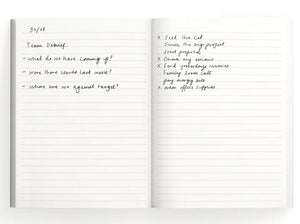 30/08
Team Debrief:
- What do we have coming up?
- Were there issues last week?
- Where are we against target?
x Feed the cat
Finish the big project
Start proposal
x Drink my venses
x Send yesterdays invoices
Family Zoom call
pay energy bill
x order office supplies